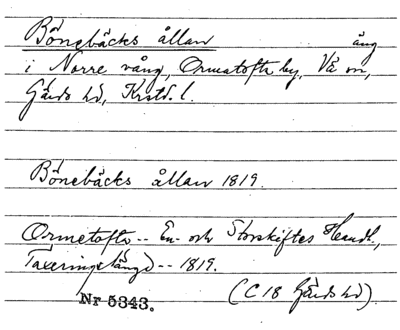 Bönebäcks ållan äng
i Norre vång, Ormatofta by, Vä sn,
Gärds hd, Krstd. l.
Bönebäcks ållan 1819.
Ormetofta -- En- och Storskiftes Handl.,
Taxeringslängd -- 1819.
Nr 5343. (C 18 Gärds hd)